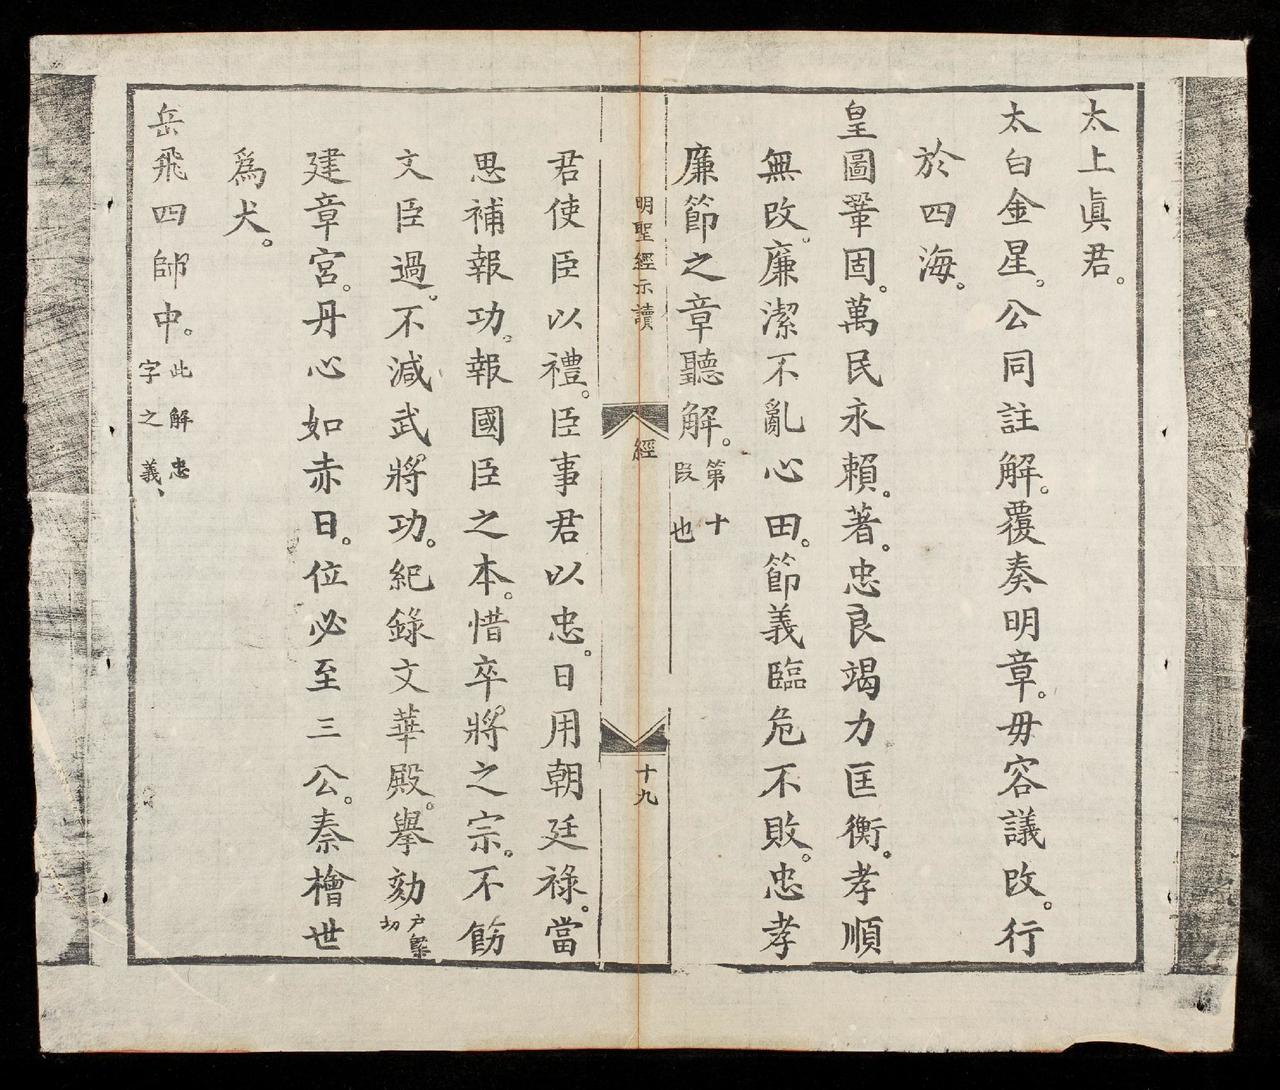 太上眞君。
太白金星。公同註解。覆奏明章。毋容議攺。行
於四海。
皇圖鞏固。萬民永賴。著。忠良竭力匡衡。孝順
無攺。廉潔不亂心田。節義臨危不敗。忠孝
廉節之章聽解。第十叚也
明聖經示讀 經 十九
君使臣以禮。臣事君以忠。日用朝廷祿。當
思補報功。報國臣之本。惜卒。將之宗。不飭
文臣過。不減武將功。紀錄文華殿。擧劾戶槩切
建章宮。丹心如赤日。位必至三公。秦檜世
爲犬。
岳飛四帥中。此解忠字之義、